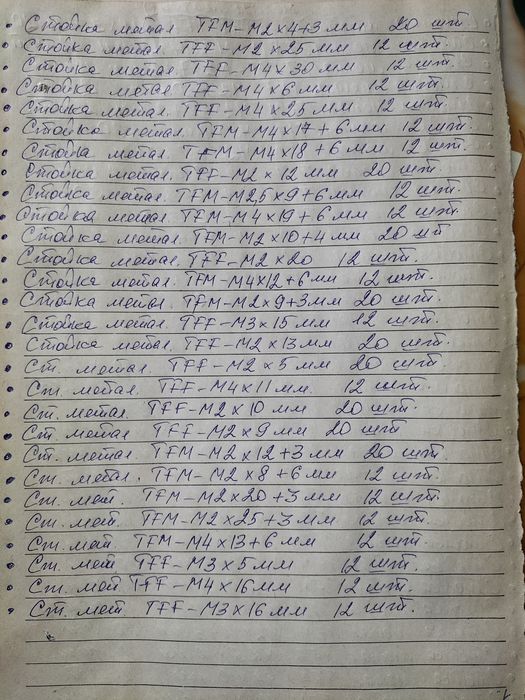 Стойка метал. TFM-M2x4+3мм 20 шт.
Стойка метал. TFF-M2x25мм 12 шт.
Стойка метал. TFF-M4x30мм 12 шт.
Стойка метал TFF-M4x6мм 12 шт.
Стойка метал. TFF-M4x25мм 12 шт.
Стойка метал. TFM-M4x17+6мм 12 шт.
Стойка метал. TFM-M4x18+6мм 12 шт.
Стойка метал. TFF-M2x12мм 20 шт.
Стойка метал. TFM-M2,5x9+6мм 12 шт.
Стойка метал. TFM-M4x19+6мм 12 шт.
Стойка метал. TFM-M2x10+4мм 20 шт
Стойка метал. TFF-M2x20 12 шт.
Стойка метал. TFM-M4x12+6мм 12 шт.
Стойка метал. TFM-M2x9+3мм 20 шт.
Стойка метал. TFF-M3x15мм 12 шт.
Стойка метал. TFF-M2x13мм 20 шт.
Ст. метал. TFF-M2x5мм 20 шт.
Ст. метал. TFF-M4x11мм. 12 шт.
Ст. метал. TFF-M2x10мм 20 шт.
Ст. метал. TFF-M2x9мм 20 шт
Ст. метал. TFM-M2x12+3мм 20 шт.
Ст. метал. TFM-M2x8+6мм 12 шт.
Ст. мет. TFM-M2x20+3мм 12 шт.
Ст. мет. TFM-M2x25+3мм 12 шт.
Ст. мет. TFM-M4x13+6мм 12 шт.
Ст. мет TFF-M3x5мм 12 шт.
Ст. мет TFF-M4x16мм 12 шт.
Ст. мет TFF-M3x16мм 12 шт.